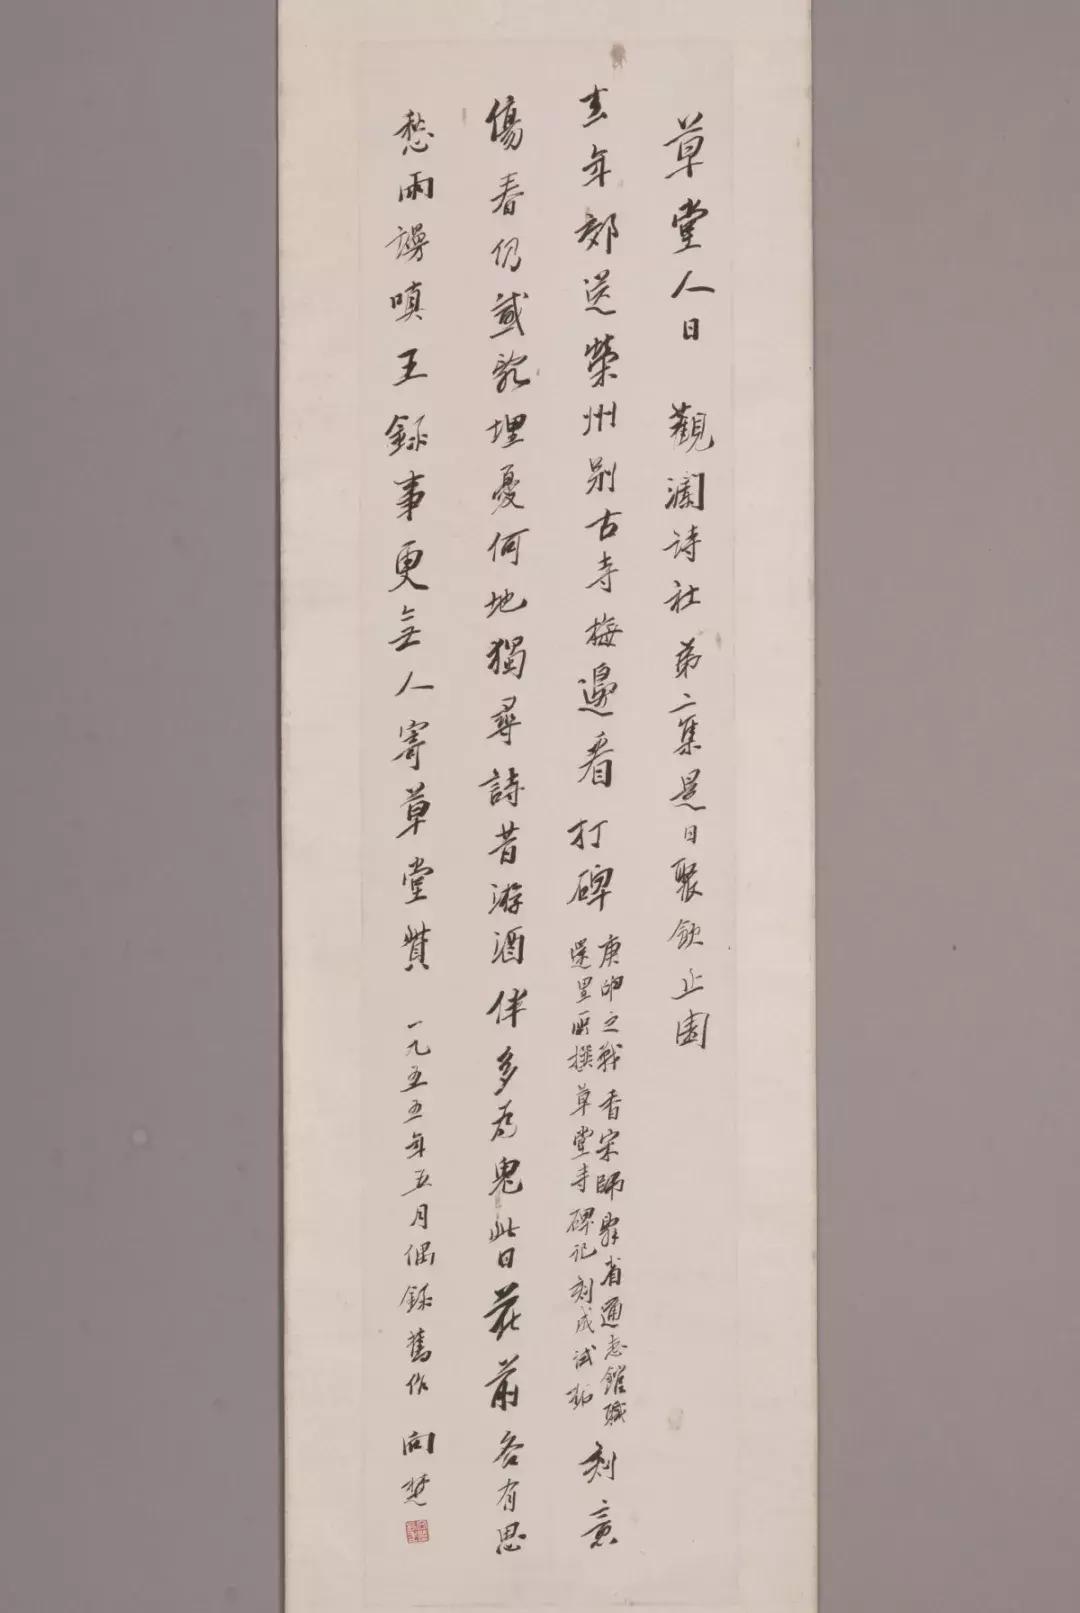 草堂人日 觀瀾诗社第二集是日聚飲止園
去年郊送榮州別古寺梅邊看打碑
庚卯之戰香宋師辭省通志館職
還里所撰草堂寺碑記刻成試拓
刻意
傷春仍感亂埋憂何地獨尋詩昔游酒伴多為鬼此日花前各有思
愁雨謾嗔王録事更無人寄草堂貲 一九五五年五月偶録舊作 向楚